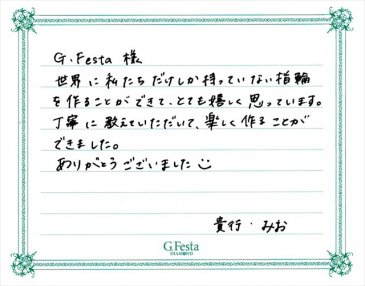 G.Festa 様
世界に私たちだけしか持っていない指輪
を作ることができて、とても嬉しく思っています。
丁寧に教えていただいて、楽しく作ることが
できました。
ありがとうございました
貴行・みお
G.Festa
DIAMOND